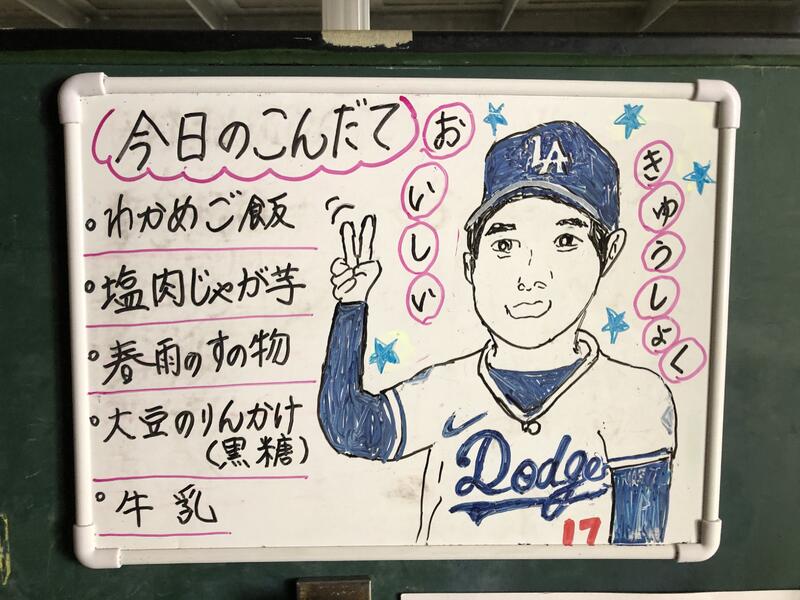 今日のこんだて
。わかめご飯
。塩肉じゃが芋
。春雨のすの物
。大豆のりんかけ
（黒糖）
。牛乳
おいしい
きゅうしょく
LA
Dodge
17